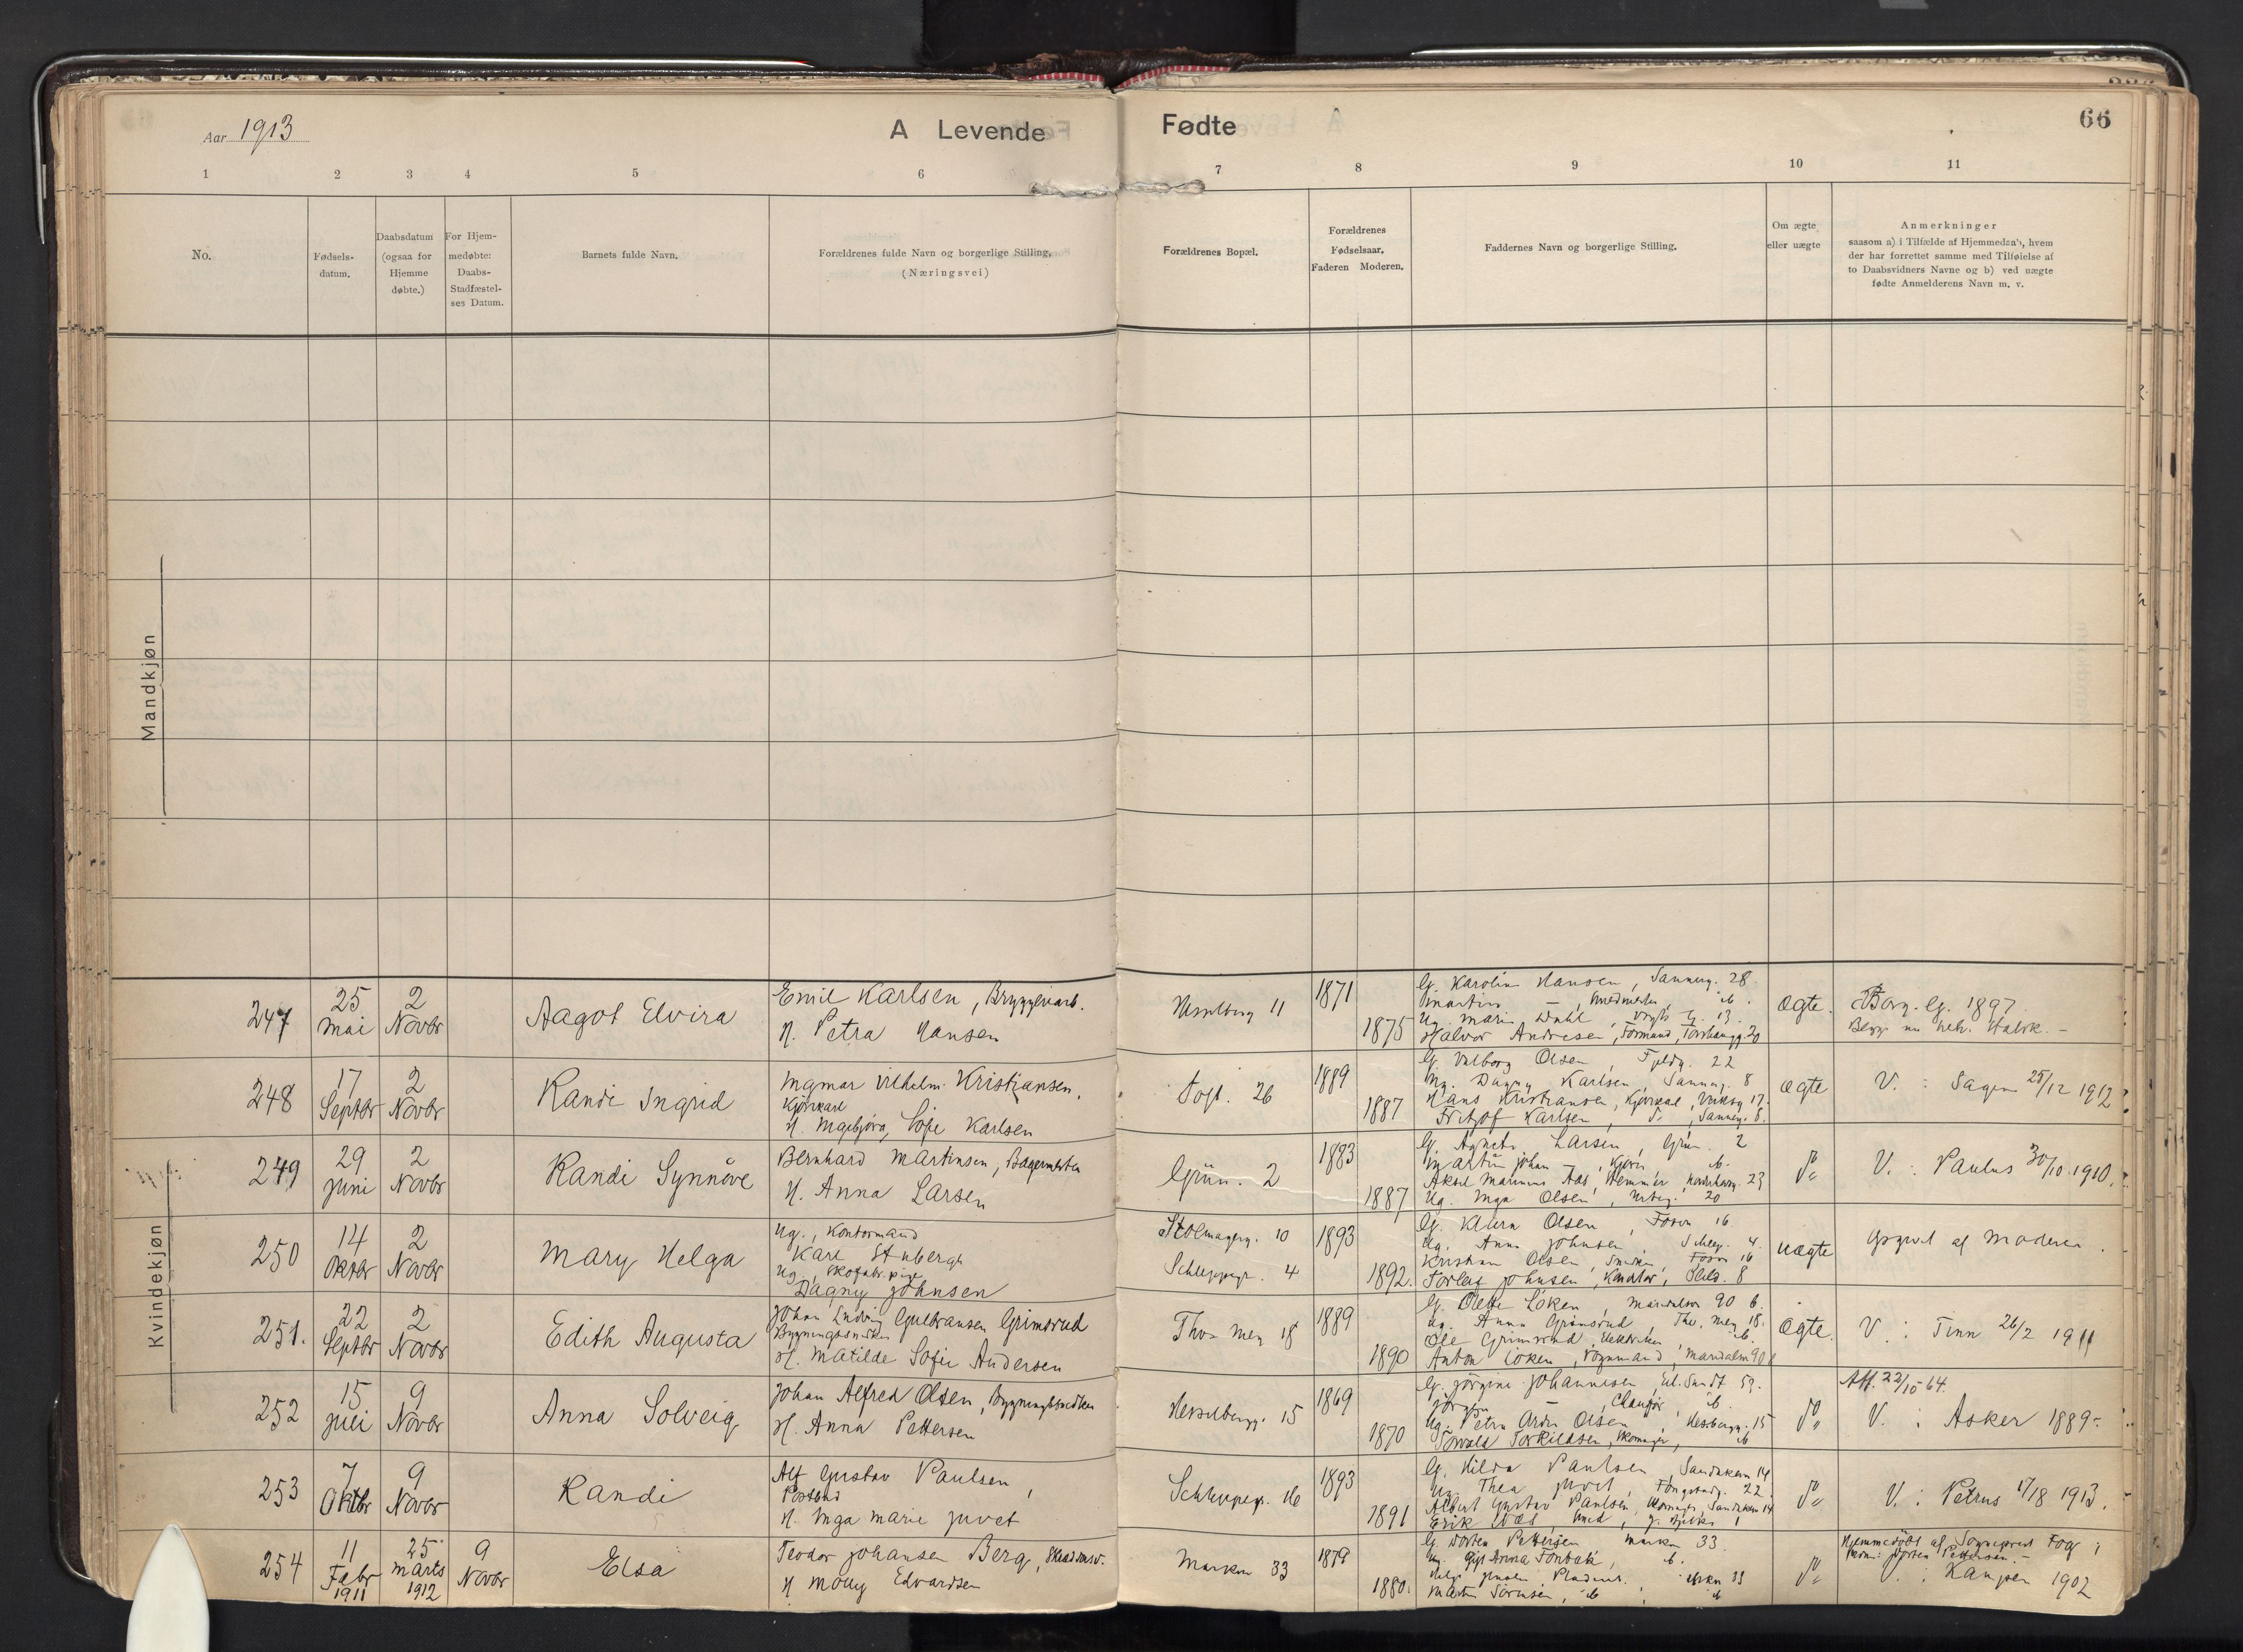 Aar 1913
A Levende Fødte
66
1 2 3 4 5 6 7 8 9 10 11
No.
Fødsels-
datum.
Daabsdatum
(ogsaa for
Hjemme
døbte.)
For Hjem-
medøbte:
Daabs-
Stadfæstel-
ses Datum.
Barnets fulde Navn.
Forældrenes fulde Navn og borgerlige Stilling.
(Næringsvei)
Forældrenes Bopæl.
Forældrenes
Fødselsaar.
Faderen Moderen.
Faddernes Navn og borgerlige Stilling.
Om ægte
eller uægte
Anmerkninger
saasom a) i Tilfælde af Hjemmedaab, hvem
der har forrettet samme med Tilføielse af
to Daabsvidners Navne og b) ved uægte
fødte Anmelderens Navn m. v.
Mandkjøn
Kvindekjøn
247
25
Mai
2
Novbr
Aagot Elvira
Emil Karlsen, Bryggeriarb.
H. Petra Hansen
Hesselberg 11
1871
1875
G. Karolin Hansen, Sannerg. 28.
Martin
Ug. Marie Dahl
Halvor Andresen, Formand
ægte.
Borg. lg. 1897
248
17
Septbr
2
Novbr
Randi Ingrid
Ingmar Vilhelm Kristiansen,
Kjørekarl
H. Ingebjørg Sofie Karlsen
Toft. 26
1889
1887
G. Valborg Olsen, 22
Ug. Dagny Karlsen, Sannerg. 8
Hans Kristiansen, Kjørekarl
Fritjof Karlsen, Sannerg. 8.
ægte
V. : Sagene 25/12 1912
249
29
Juni
2
Novbr
Randi Synnøve
Bernhard Martinsen, Bagermester
H. Anna Larsen
Grün. 2
1883
1887
G. Agnete Larsen, Grün. 2
Martin Johan
Aksel Marinius Aas
Ug. Inga Olsen 20
do
V. : Paulus 30/10 1910.
250
14
Oktbr
2
Novbr
Mary Helga
Ug., Kontormand
Karl Stubergh
Ug., Skofabr. pige
Dagny Johnsen
Stolmagerg. 10
Schleppegr. 4
1893
1892.
G. Klara Olsen, Fossv. 16
Ug. Anna Johnsen, Schlep. 4.
Kristian Olsen, Snedker, Fossv. 16
Torleif Johnsen, 8
uægte
Opgivet af Moderen.
251.
22
Septbr
2
Novbr
Edith Augusta
Johan Ludvig Gulbransen Grimsrud
Bygningssnedker
H. Matilde Sofie Andersen
Ths. Mey 18
1889
1890
G. Olette Løken, Maridalsv 90 b.
Ug. Anna Grimsrud, Ths. Mey 18.
Ole Grimsrud
Anton Løken, Vognmand, Maridalsv 90
ægte.
V. : Tinn 26/2 1911
252
15
Juli
9
Novbr
Anna Solveig
Johan Alfred Olsen, Bygningssnedker
H. Anna Pettersen
Hesselbergg. 15
1869
1870
G. Jørgine Johannesen, Eil. Sundt 59.
Jørgen, Chauffør ib.
Ug. Petra Olsen, Hesselbergg. 15
Torvald Torkildsen, Skomager, ib
do
Att. 22/10 64.
V. : Asker 1889.
253
7
Oktbr
9
Novbr
Randi
Alf Gustav Paulsen,
Postbud
H. Inga Marie Juvet
Schleppegr. 16
1893
1891
G. Hilda Paulsen, Sandakerv 14
Ug. Thea Juvet, 22.
Albert Gustav Paulsen, Skomager, Sandakerv 14
Erik
do
V. : Petrus 1913.
254
11
Febr
1911
25
Marts
1912
9
Novbr
Elsa
Teodor Johansen Berg,
H Molly Edvardsen
Markvn 33
1879
1880.
G. Dorthea Pettersen Markvn 33.
Ug. Anna
Martin Sørensen, ib
do
Hjemmedøbt af Sogneprest Fog i
Kampen 1902